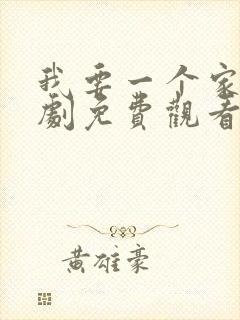 我要一个家
劇免費觀看
黃雄豪